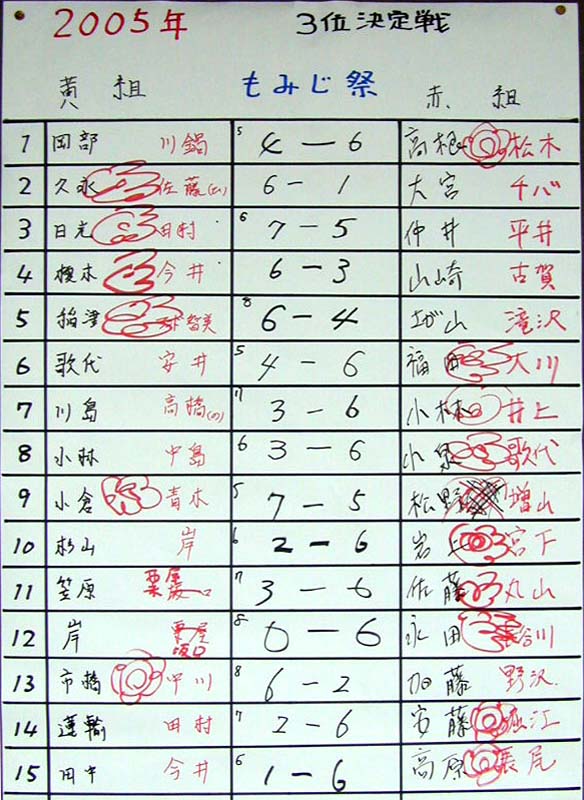 2005年 3位決定戦
黄組 もみじ祭 赤組
1 岡部 川鍋 5 4-6 高根 松木
2 久永 佐藤(山) 6-1 大宮 千バ
3 日光 田村 6 7-5 仲井 平井
4 榎本 今井 6-3 山崎 古賀
5 稲津 8 6-4 山 滝沢
6 歌代 安井 5 4-6 福田 大川
7 川島 高橋(の) 7 3-6 小林 井上
8 小林 中島 6 3-6 小泉 歌代
9 小倉 青木 5 7-5 松野 増山
10 杉山 岸 6 2-6 岩上 宮下
11 笠原 7 3-6 佐藤 丸山
12 岸 栗屋 坂口 8 0-6 永田 長谷川
13 市橋 中川 8 6-2 加藤 野沢
14 蓮輪 田村 7 2-6 安藤 堀江
15 田中 今井 6 1-6 高原 長尾